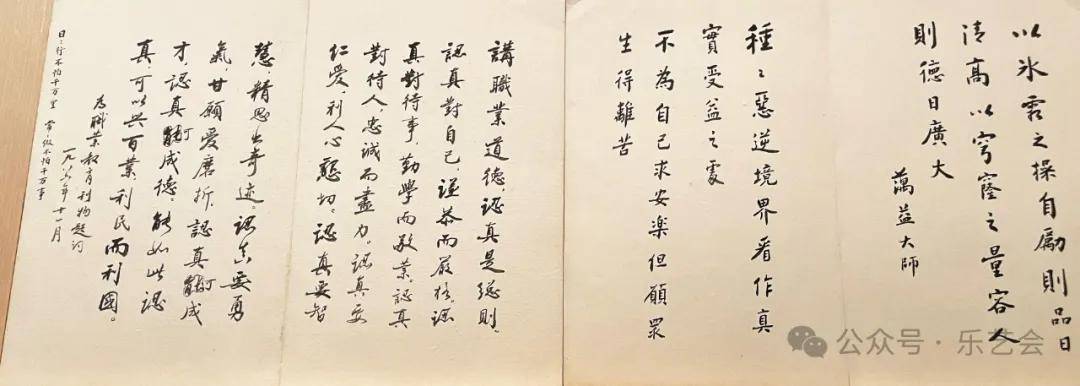 以冰霜之操自勵則品日
清高以穹窿之量容人
則德日廣大
蕅益大師
種々惡逆境界看作真
實受益之處
不為自己求安楽但願眾
生得離苦
講職業道德,認真是總則。
認真對自己,謹恭而嚴格。認
真對待事,勤學而敬業。認真
對待人,忠誠而盡力。認真要
仁愛,利人心懇切。認真要智
慧,精思出奇迹。認真要勇
氣,甘願受磨折。認真能成
才,認真能成德。能如此認
真可以興百業利民而利國。
為職業教育刊物題詞
一九年十一月
日々行不怕千万里 常々做不怕千万事
公众号·乐艺会